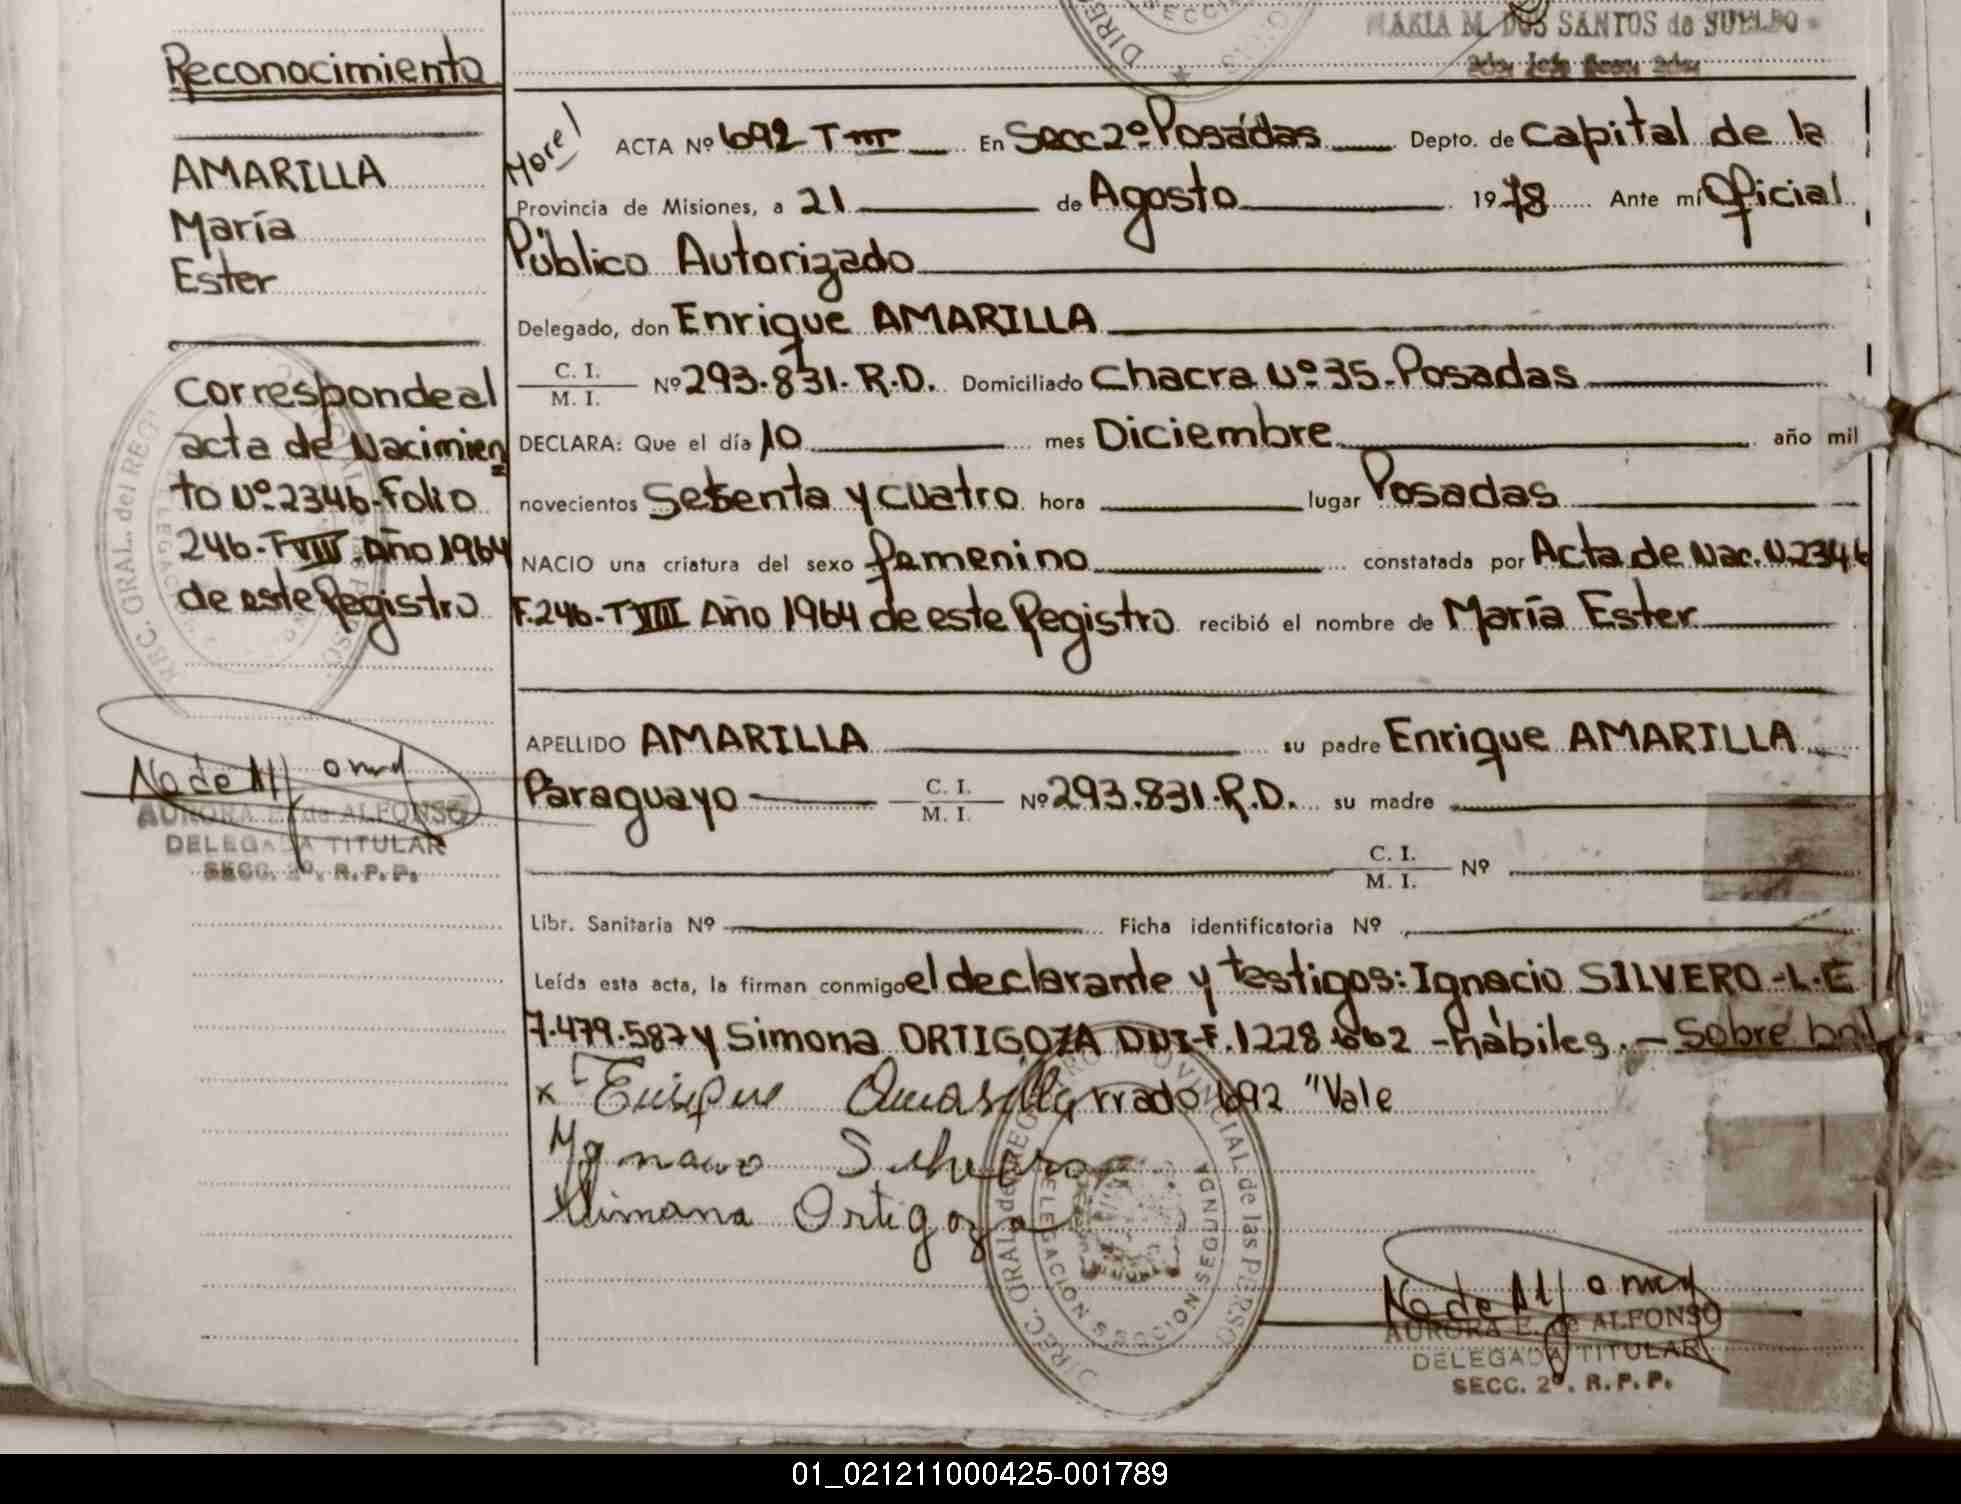 MARIA M. DOS SANTOS de SUELDO
Reconocimiento
AMARILLA
María
Ester
Corresponde al
acta de Nacimien
to Nº 2346-Folio
246-T VIII. Año 1964
de este Registro
AURORA E. de ALFONSO
DELEGADA TITULAR
SECC. 2º. R. P. P.
ACTA Nº 692 T III En Secc 2º Posadas Depto. de Capital de la
Provincia de Misiones, a 21 de Agosto 1978 Ante mí Oficial
Público Autorizado
Delegado, don Enrique AMARILLA
C. I.
M. I. Nº 293.831. R.D. Domiciliado Chacra Nº 35-Posadas
DECLARA: Que el día 10 mes Diciembre año mil
novecientos Setenta y cuatro hora lugar Posadas
NACIO una criatura del sexo femenino constatada por Acta de Nac. N.2346
F.246-T VIII Año 1964 de este Registro recibió el nombre de María Ester
APELLIDO AMARILLA su padre Enrique AMARILLA
Paraguayo C. I.
M. I. Nº 293.831.R.D. su madre
C. I.
M. I. Nº
Libr. Sanitaria Nº Ficha identificatoria Nº
Leída esta acta, la firman conmigo el declarante y testigos: Ignacio SILVERO-L.E
7.479.587 y Simona ORTIGOZA DNI-F.1228.662 -hábiles.- Sobre
x Enrique Amarilla rrado 692 "Vale
Ygnacio Silvero
Simona Ortigoza
DIREC. GRAL. de REG. PROVINCIAL de las PERSO
DELEGACION SECCION SEGUNDA
AURORA E. de ALFONSO
DELEGADA TITULAR
SECC. 2º. R. P. P.
01_021211000425-001789